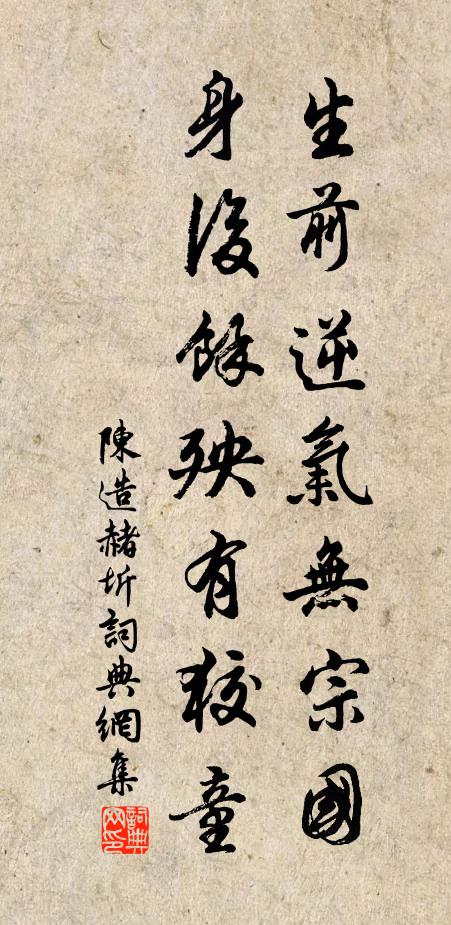 生前逆氣無宗國
身後餘殃有狡童
陳造赭圻詞典網集
詞典網印